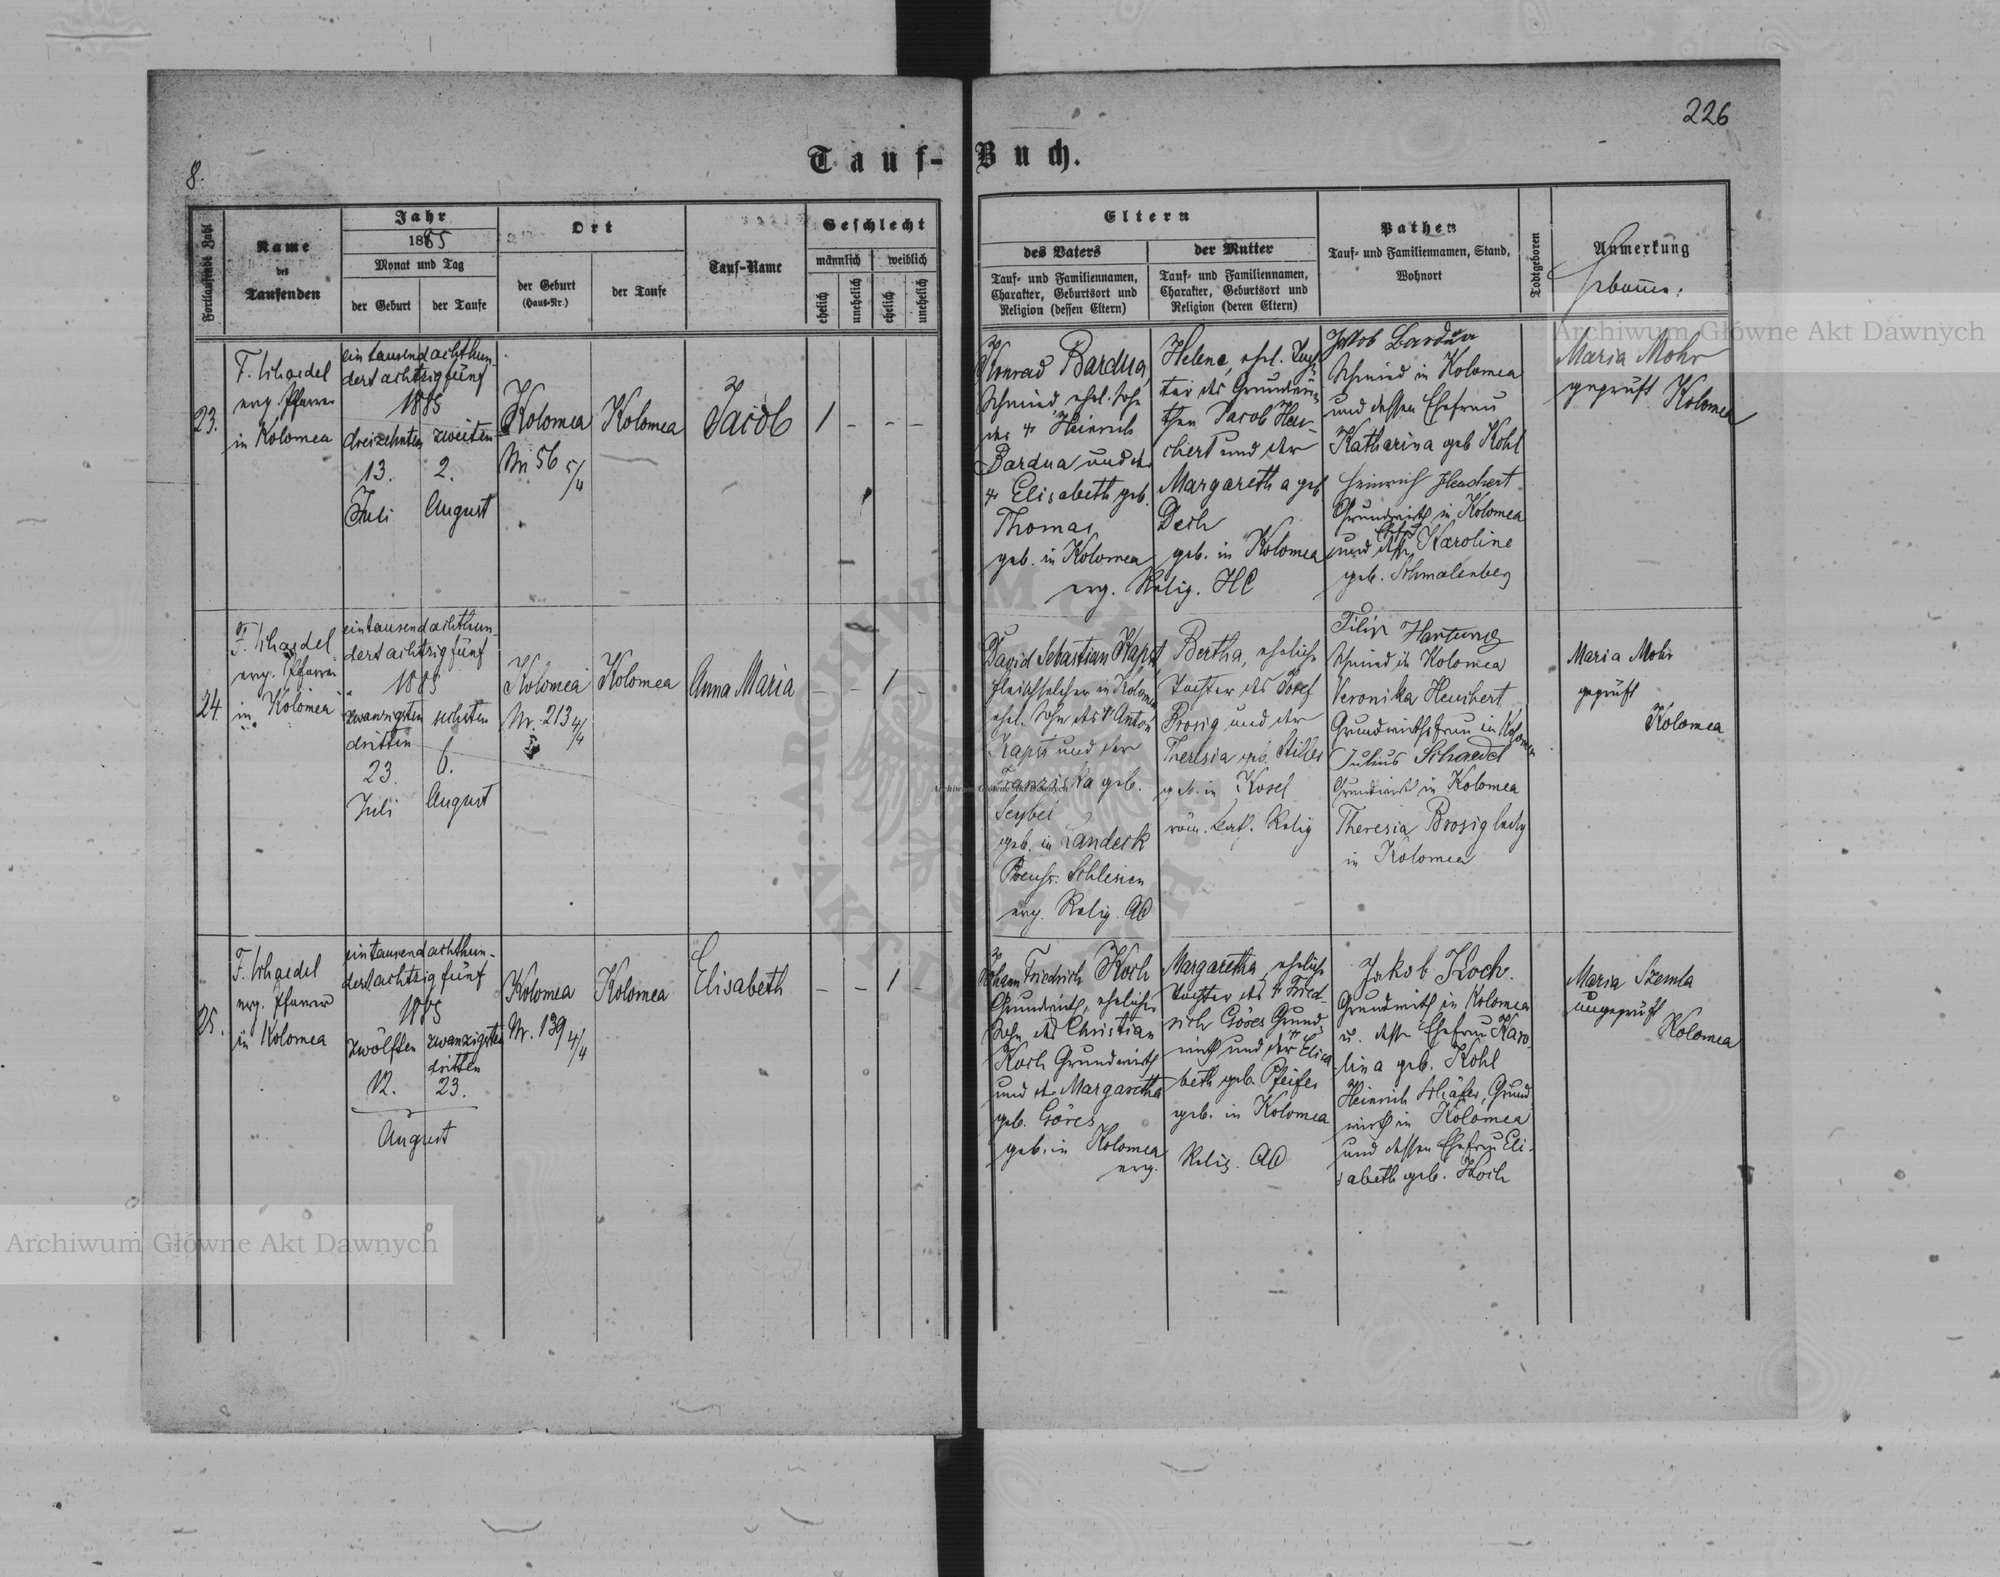 226
8.
Tauf-Buch.
Fortlaufende Zahl
Name
des
Taufenden
Jahr
1885
Monat und Tag
der Geburt
der Taufe
Ort
der Geburt
(Haus-Nr.)
der Taufe
Tauf-Name
Geschlecht
männlich
weiblich
ehelich
unehelich
ehelich
unehelich
Eltern
des Vaters
Tauf- und Familiennamen,
Charakter, Geburtsort und
Religion (dessen Eltern)
der Mutter
Tauf- und Familiennamen,
Charakter, Geburtsort und
Religion (deren Eltern)
Pathen
Tauf- und Familiennamen, Stand,
Wohnort
Todtgeboren
Anmerkung
Hebamme:
23.
F. Schaedel
evg. Pfarrer
in Kolomea
eintausendachthun-
dertachtzigfünf
1885
dreizehnten
13.
Juli
zweiten
2.
August
Kolomea
Nr. 56 5/4
Kolomea
Jacob
1 - - -
Konrad Bardua,
Schmied, ehel. Sohn
des † Heinrich
Bardua und der
† Elisabeth geb.
Thomas
geb. in Kolomea
Helene, ehel. Toch-
ter des Grundwir-
then Jacob Heu-
chert und der
Margaretha geb
Desh
geb. in Kolomea
evg. Relig. HC
Jakob Bardua
Schmied in Kolomea
und dessen Ehefrau
Katharina geb Kohl
Heinrich Heuchert
Grundwirth in Kolomea
und dessen Ehefr. Karoline
geb. Schmalenberg
Maria Mohr
geprüft
Kolomea
24.
F. Schaedel
evg. Pfarrer
in Kolomea
eintausendachthun-
dertachtzigfünf
1885
zwanzigsten
dritten
23.
Juli
sechsten
6.
August
Kolomea
Nr. 213 4/4
Kolomea
Anna Maria
- - 1 -
David Sebastian Kapst
Fleischselcher in Kolomea
ehel. Sohn des † Anton
Kapst und der
Franziska geb.
Seybel
geb. in Landeck
Preuss. Schlesien
evg. Relig. AC
Bertha, eheliche
Tochter des Josef
Brosig und der
Theresia geb. Stiller
geb. in Kosel
röm. kat. Relig
Filip Hartung
Schmied in Kolomea
Veronika Heuchert
Grundwirthsfrau in Kolomea
Julius Schaedel
Grundwirth in Kolomea
Theresia Brosig ledig
in Kolomea
Maria Mohr
geprüft
Kolomea
25.
F. Schaedel
evg. Pfarrer
in Kolomea
eintausendachthun-
dertachtzigfünf
1885
zwölften
12.
zwanzigsten
dritten
23.
August
Kolomea
Nr. 139 4/4
Kolomea
Elisabeth
- - 1 -
Johann Friedrich Koch
Grundwirth, ehelicher
Sohn des Christian
Koch Grundwirth
und der Margaretha
geb. Göres
geb. in Kolomea
evg.
Margaretha, eheliche
Tochter des † Fried-
rich Göres Grund-
wirth und der † Elisa
beth geb. Pfeifer
geb. in Kolomea
Relig. AC
Jakob Koch.
Grundwirth in Kolomea
u. dessen Ehefrau Karo-
lina geb. Kohl
Heinrich Schäfer, Grund
wirth in Kolomea
und dessen Ehefrau Eli-
sabeth geb. Koch
Maria Szemla
ungeprüft
Kolomea
Archiwum Główne Akt Dawnych
Archiwum Główne Akt Dawnych
Archiwum Główne Akt Dawnych